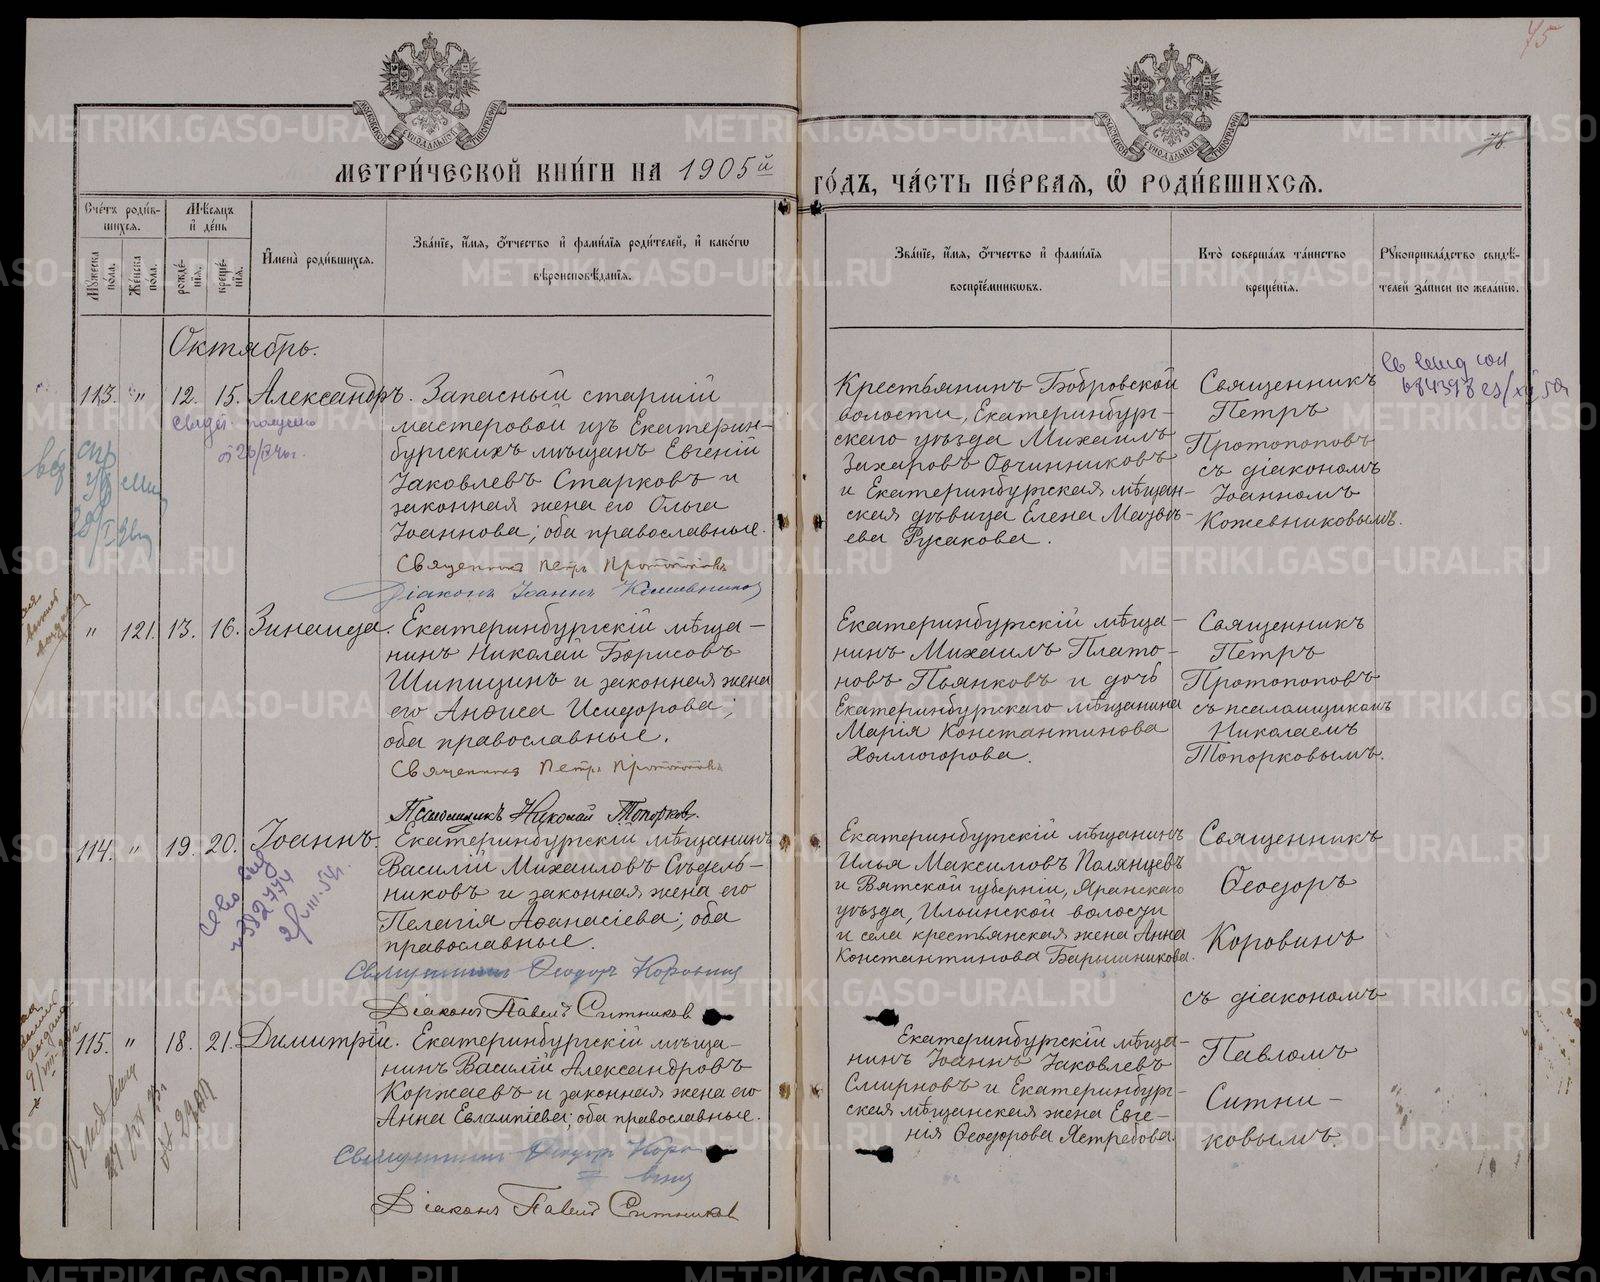 75
75
МЕТРИ́ЧЕСКОЙ КНИ́ГИ НА 1905й
ГО́ДЪ, ЧА́СТЬ ПЕ́РВАѦ, Ѽ РОДИ́ВШИХСѦ.
Сче́тъ роди́в-
шихся.
Мѣ́сяцъ
и́ де́нь
Мꙋ́жеска
по́ла.
Же́нска
по́ла.
рожде́-
нїя.
креще́-
нїя.
И҆мена̀ роди́вшихся.
Зва́нїе, и҆́мя, ѻ҆́тчество и҆ фами́лїя роди́телей, и҆ како́гѡ
вѣроисповѣ́данїя.
Зва́нїе, и҆́мя, ѻ҆́тчество и҆ фами́лїя
воспрїе́мникѡвъ.
Кто̀ соверша́лъ та́инство
креще́нїя.
Рꙋкоприкла́дство свидѣ́-
телей за́писи по жела́нїю.
Октябрь.
113. " 12. 15. Александръ.
Запасный старшій
мастеровой изъ Екатерин-
бургскихъ мѣщанъ Евгеній
Іаковлевъ Старковъ и
законная жена его Ольга
Іоаннова; оба православные.
Священникъ Петръ Протопоповъ
Діаконъ Іоаннъ Кожевниковъ
Крестьянинъ Бобровской
волости, Екатеринбург-
скаго уѣзда Михаилъ
Захаровъ Овчинниковъ
и Екатеринбургская мѣщан-
ская дѣвица Елена Матвѣ-
ева Русакова.
Священникъ
Петръ
Протопоповъ
съ діакономъ
Іоанномъ
Кожевниковымъ.
" 121. 13. 16. Зинаида.
Екатеринбургскій мѣща-
нинъ Николай Борисовъ
Шипицинъ и законная жена
его Анѳиса Исидорова;
оба православные.
Священникъ Петръ Протопоповъ
Псаломщикъ Николай Топорков.
Екатеринбургскій мѣща-
нинъ Михаилъ Плато-
новъ Пьянковъ и дочь
Екатеринбургскаго мѣщанина
Марія Константинова
Холмогорова.
Священникъ
Петръ
Протопоповъ
съ псаломщикомъ
Николаемъ
Топорковымъ.
114. " 19. 20. Іоаннъ.
Екатеринбургскій мѣщанинъ
Василій Михаиловъ Сѣдель-
никовъ и законная жена его
Пелагія Аѳанасіева; оба
православные.
Священникъ Ѳеодоръ Коровинъ
Діаконъ Павелъ Ситников
Екатеринбургскій мѣщанинъ
Илья Максимовъ Полянцевъ
и Вятской губерніи, Яранскаго
уѣзда, Ильинской волости
и села крестьянская жена Анна
Константинова Барышникова.
Священникъ
Ѳеодоръ
Коровинъ
съ діакономъ
Павломъ
Ситни-
ковымъ.
115. " 18. 21. Димитрій.
Екатеринбургскій мѣща-
нинъ Василій Александровъ
Коржаевъ и законная жена его
Анна Евлампіева; оба православные.
Священникъ Ѳеодоръ Коро-
винъ
Діаконъ Павелъ Ситников
Екатеринбургскій мѣща-
нинъ Іоаннъ Іаковлевъ
Смирновъ и Екатеринбург-
ская мѣщанская жена Евге-
нія Ѳеодорова Ястребова.
METRIKI.GASO-URAL.RU